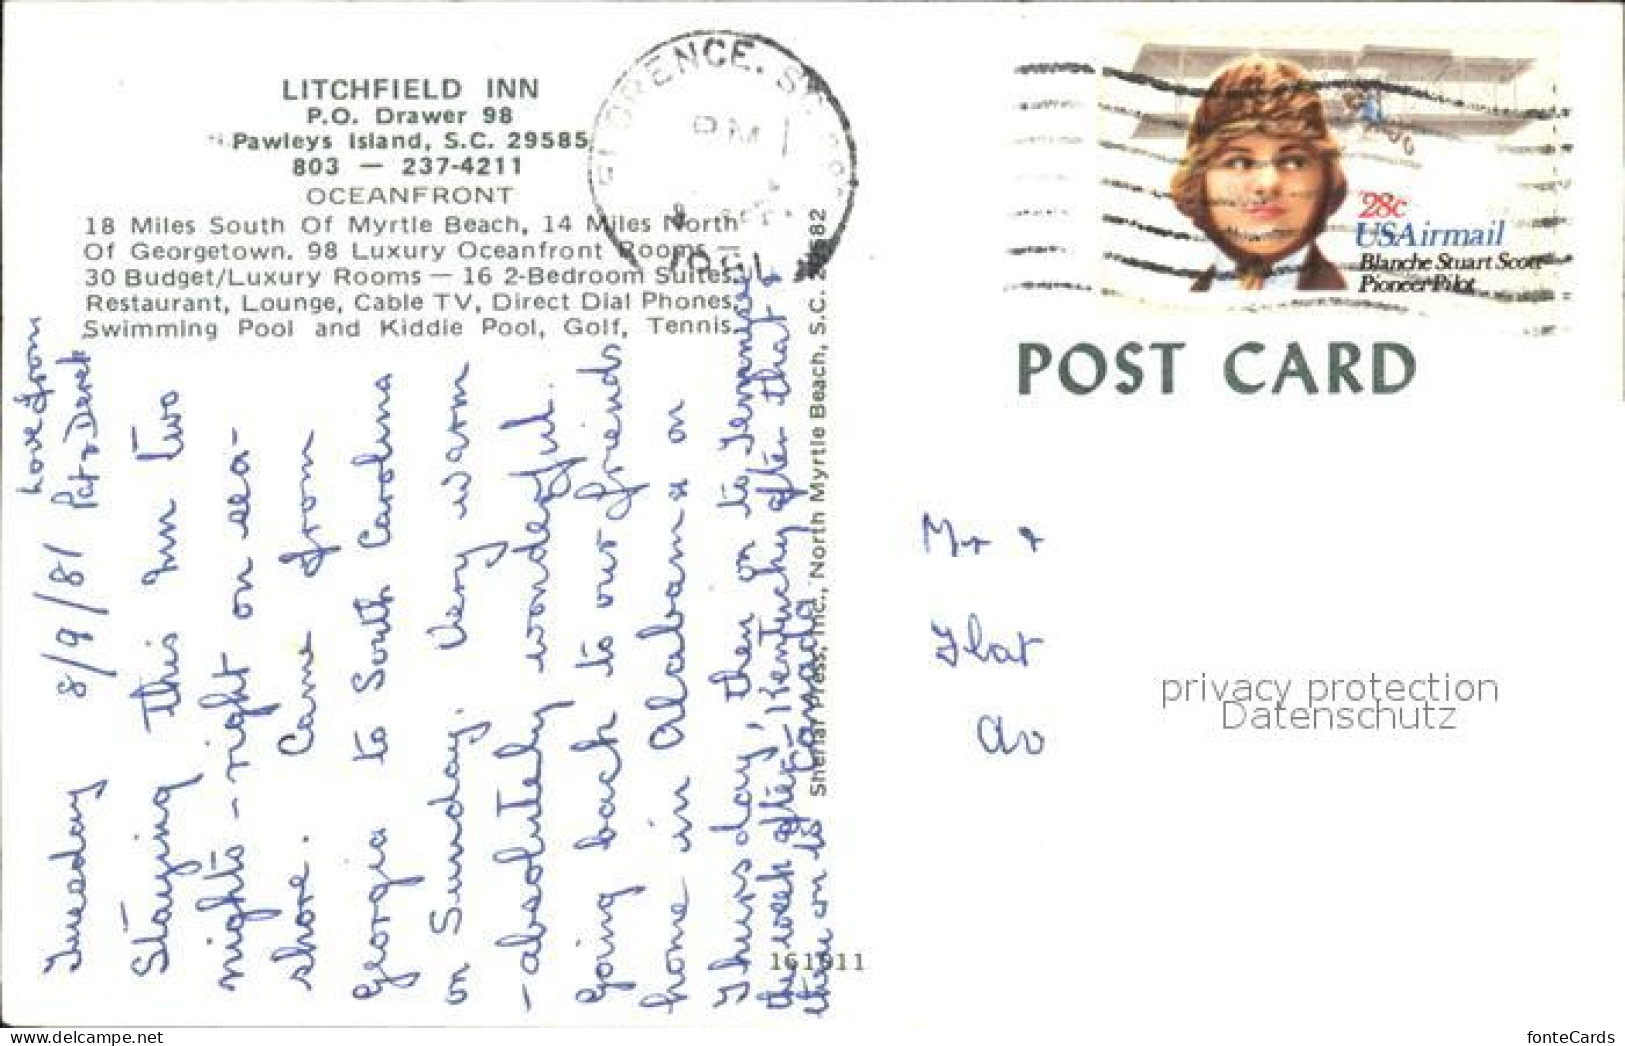 LITCHFIELD INN
P.O. Drawer 98
Pawleys Island, S.C. 29585
803 — 237-4211
OCEANFRONT
18 Miles South Of Myrtle Beach, 14 Miles North
Of Georgetown. 98 Luxury Oceanfront Rooms —
30 Budget/Luxury Rooms — 16 2-Bedroom Suites.
Restaurant, Lounge, Cable TV, Direct Dial Phones,
Swimming Pool and Kiddie Pool, Golf, Tennis.
FLORENCE, S.C.
PM
1981
28c
USAirmail
Blanche Stuart Scott
Pioneer Pilot
POST CARD
Love from
Pat & Derek
Tuesday 8/9/81
Staying this Inn two
nights - right on sea-
shore. Came from
Georgia to South Carolina
on Sunday. Very warm
- absolutely wonderful.
Going back to our friends
home in Alabama on
Thursday, then on to Tennessee
the week after, Kentucky after that &
then on to Canada
Sheriar Press, Inc., North Myrtle Beach, S.C. 29582
161911
Mr &
privacy protection
Datenschutz
delcampe.net
fonteCards